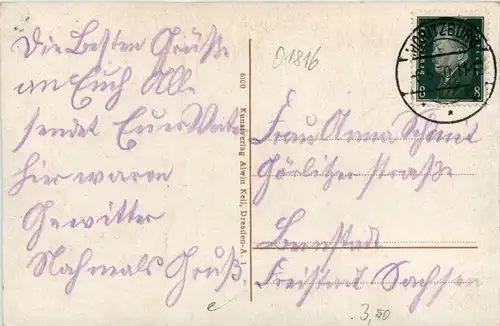 Die Besten Grüße
an Euch All
sendet Euer Vater
hier waren
Gewitter
Nachmals Gruß
6100 Kunstverlag Alwin Keil, Dresden-A. 1
01816
MORITZBURG
8
Frau Anna Schmidt
Görlitzerstraße
Bernstadt
Freistaat Sachsen
3,50